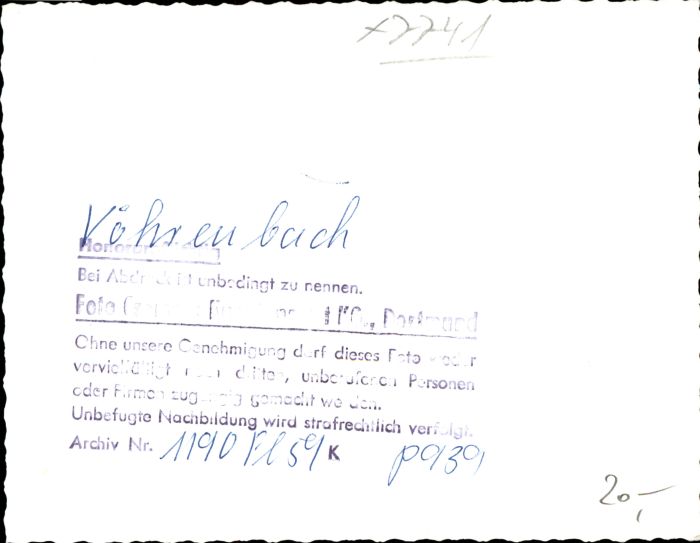 77741
Vöhrenbach
Bei unbedingt zu nennen.
Foto Dortmund
Ohne unsere Genehmigung darf dieses Foto weder
vervielfältigt noch dritten, unberufenen Personen
oder Firmen zugängig gemacht werden.
Unbefugte Nachbildung wird strafrechtlich verfolgt.
Archiv Nr. 1190 Fl 59 K p939
20,-